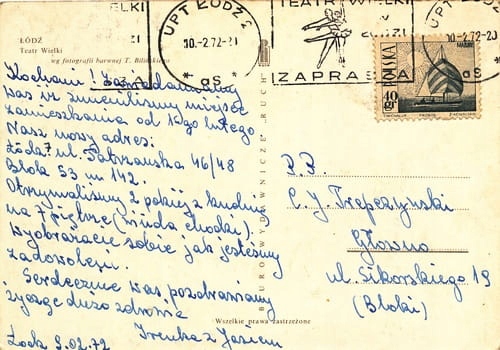 ŁÓDŹ
Teatr Wielki
wg fotografii barwnej T. Bilińskiego
UPT ŁÓDŹ 2
10.-2.72-20
* as *
TEATR WIELKI
ZAPRASZA
UPT ŁÓDŹ
-2.72-20
* as *
POLSKA
40 gr
Kochani! Zawiadamiamy
was że zmieniliśmy miejsce
zamieszkania od 1-go lutego
Nasz nowy adres:
Łódź 7 ul. Tatrzańska 46/48
Blok 53 m 142.
Otrzymaliśmy 2 pokoje z kuchnią
na 7 piętrze (winda chodzi).
Wyobrażacie sobie jak jesteśmy
zadowoleni.
Serdecznie was pozdrawiamy
życząc dużo zdrowia
Irenka z Jasiem
Łódź 9.02.72
BIURO WYDAWNICZE „RUCH”
P.P.
C. J. Trapczyński
Głowno
ul. Sikorskiego 19
(Bloki)
Wszelkie prawa zastrzeżone